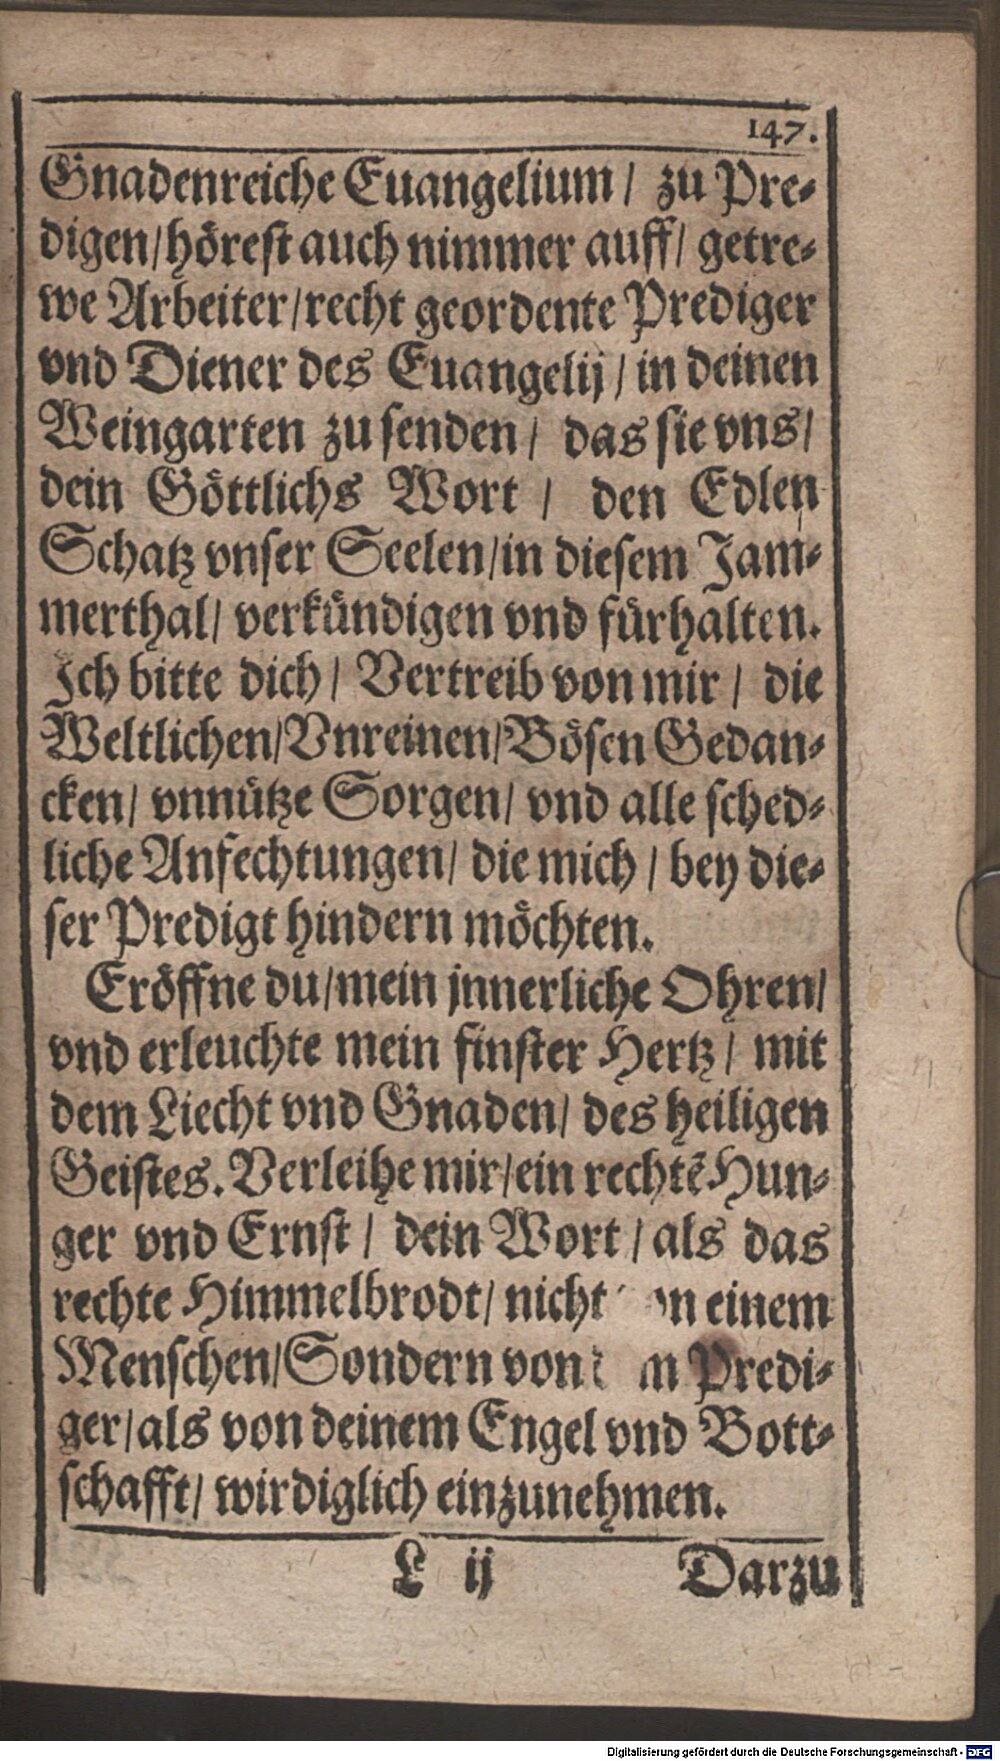 147.
Gnadenreiche Euangelium / zu Pre-
digen/ hörest auch nimmer auff/ getre-
we Arbeiter/ recht geordente Prediger
vnd Diener des Euangelij / in deinen
Weingarten zu senden / das sie vns/
dein Göttlichs Wort / den Edlen
Schatz vnser Seelen/ in diesem Jam-
merthal/ verkündigen vnd fürhalten.
Ich bitte dich/ Vertreib von mir / die
Weltlichen/ Vnreinen/ Bösen Gedan-
cken/ vnnütze Sorgen/ vnd alle sched-
liche Anfechtungen/ die mich / bey die-
ser Predigt hindern möchten.
Eröffne du/ mein jnnerliche Ohren/
vnd erleuchte mein finster Hertz / mit
dem Liecht vnd Gnaden/ des heiligen
Geistes. Verleihe mir/ ein rechtē Hun-
ger vnd Ernst / dein Wort / als das
rechte Himmelbrodt/ nicht einem
Menschen/ Sondern von Predi-
ger/ als von deinem Engel vnd Bott-
schafft/ wirdiglich einzunehmen.
L ij Darzu
Digitalisierung gefördert durch die Deutsche Forschungsgemeinschaft - DFG